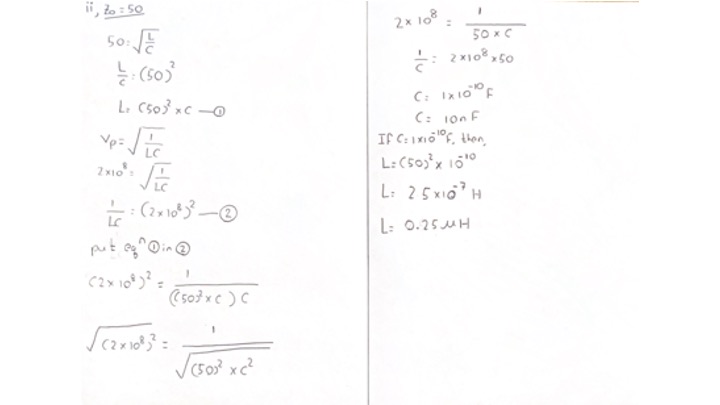 ii, Zo = 50
50 = √(L/C)
L/C = (50)²
L = (50)² × C —①
Vp = √(1/LC)
2×10⁸ = √(1/LC)
1/LC = (2×10⁸)² —②
put eqⁿ ① in ②
(2×10⁸)² = 1/((50)² × C) C
√(2×10⁸)² = 1/√(50)² × C²
2×10⁸ = 1/50×C
1/C = 2×10⁸×50
C = 1×10⁻¹⁰ F
C = 10nF
If C = 1×10⁻¹⁰F, then,
L = (50)² × 10⁻¹⁰
L = 25×10⁻⁷ H
L = 0.25 μH